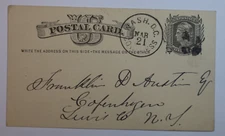 POSTAL CARD.
WASH. D.C.
MAR
21
WRITE THE ADDRESS ON THIS SIDE - THE MESSAGE ON THE OTHER
Franklin D Austin Esq
Copenhagen
Lewis Co N.Y.